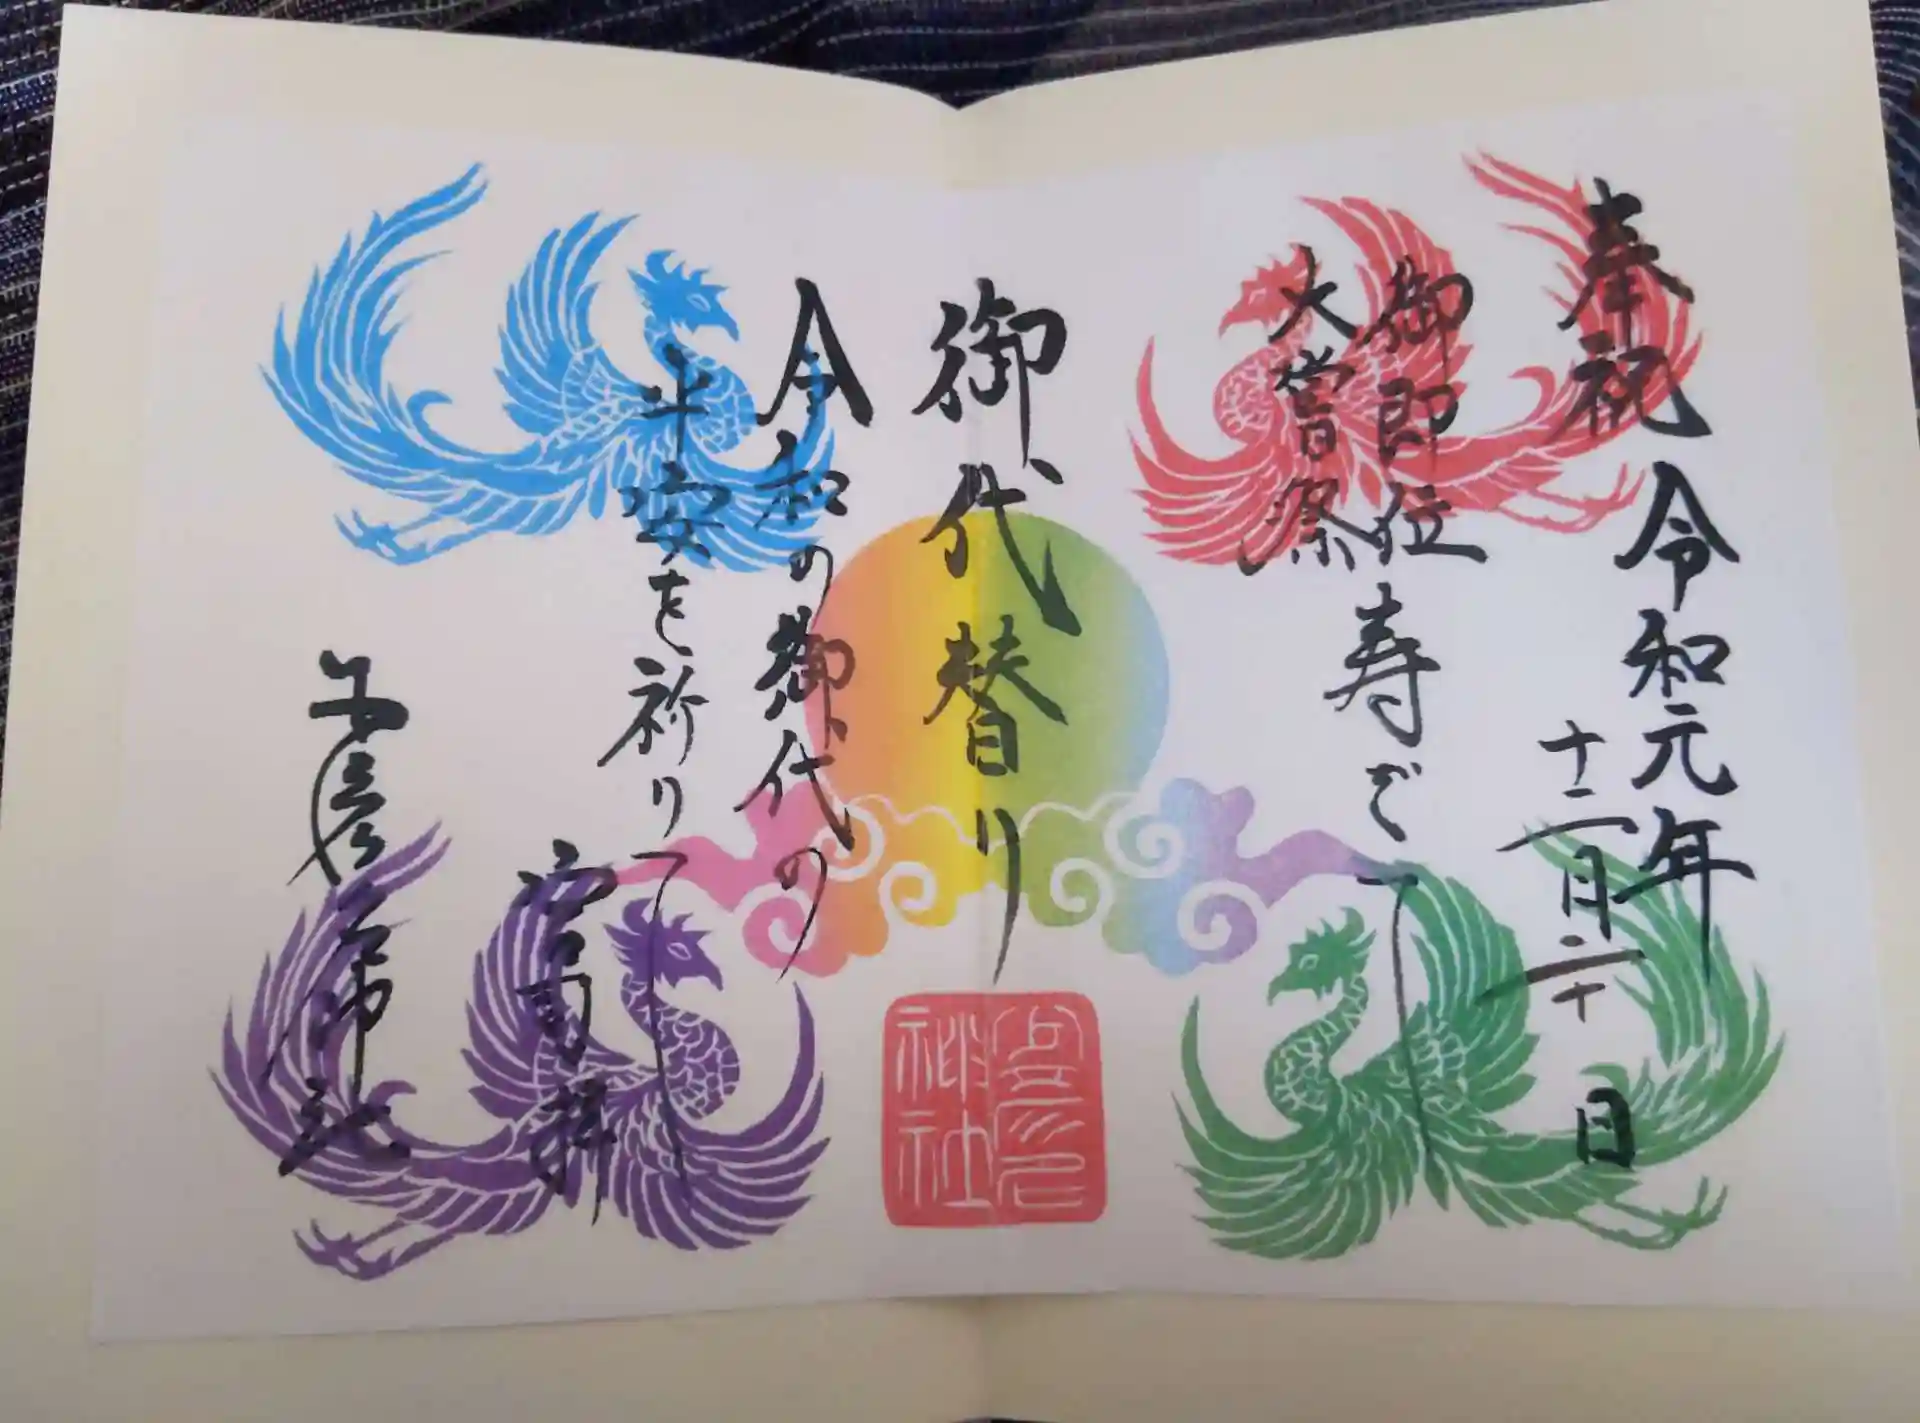 奉祝 令和元年
十二月二十日
御即位
大嘗祭
寿ぎて
御代替り
令和の御代の
平安を祈りて
宮司拝
神社